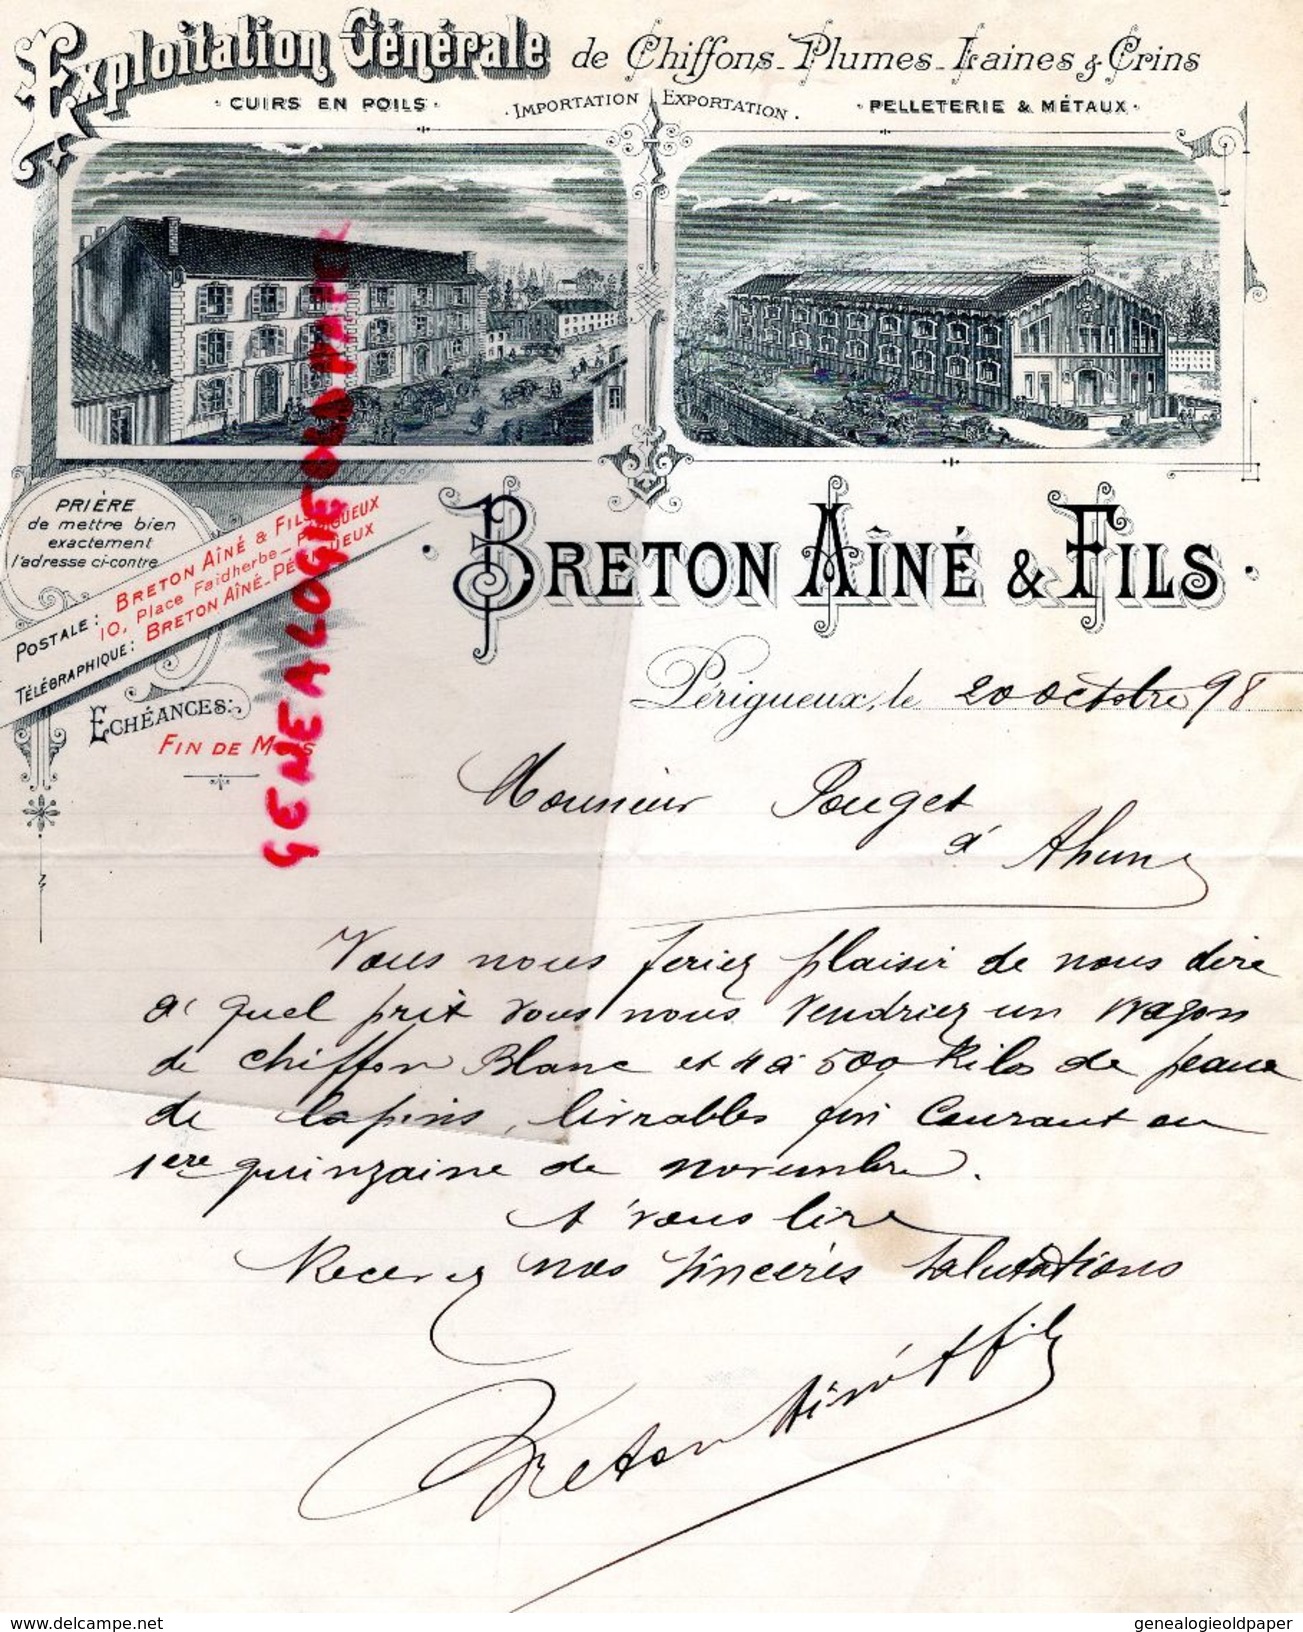 Exploitation Générale de Chiffons - Plumes - Laines & Crins
· CUIRS EN POILS · · IMPORTATION EXPORTATION · · PELLETERIE & MÉTAUX ·
PRIÈRE
de mettre bien
exactement
l'adresse ci-contre
POSTALE: BRETON AÎNÉ & FILS PÉRIGUEUX
10, Place Faidherbe _ PÉRIGUEUX
TÉLÉGRAPHIQUE: BRETON AÎNÉ_PÉRIGUEUX
BRETON AÎNÉ & FILS ·
ECHÉANCES:
FIN DE MOIS
GENEALOGIEOLDPAPER
Périgueux, le 20 octobre 98
Monsieur Pouget
à Ahun
Vous nous feriez plaisir de nous dire
à quel prix vous nous vendriez un wagon
de chiffon Blanc et 4 à 500 Kilos de peaux
de lapins, livrables fin Courant ou
1ere quinzaine de novembre.
A vous lire
Recevez nos sincères salutations
Breton Aîné & fils
delcampe.net
genealogieoldpaper